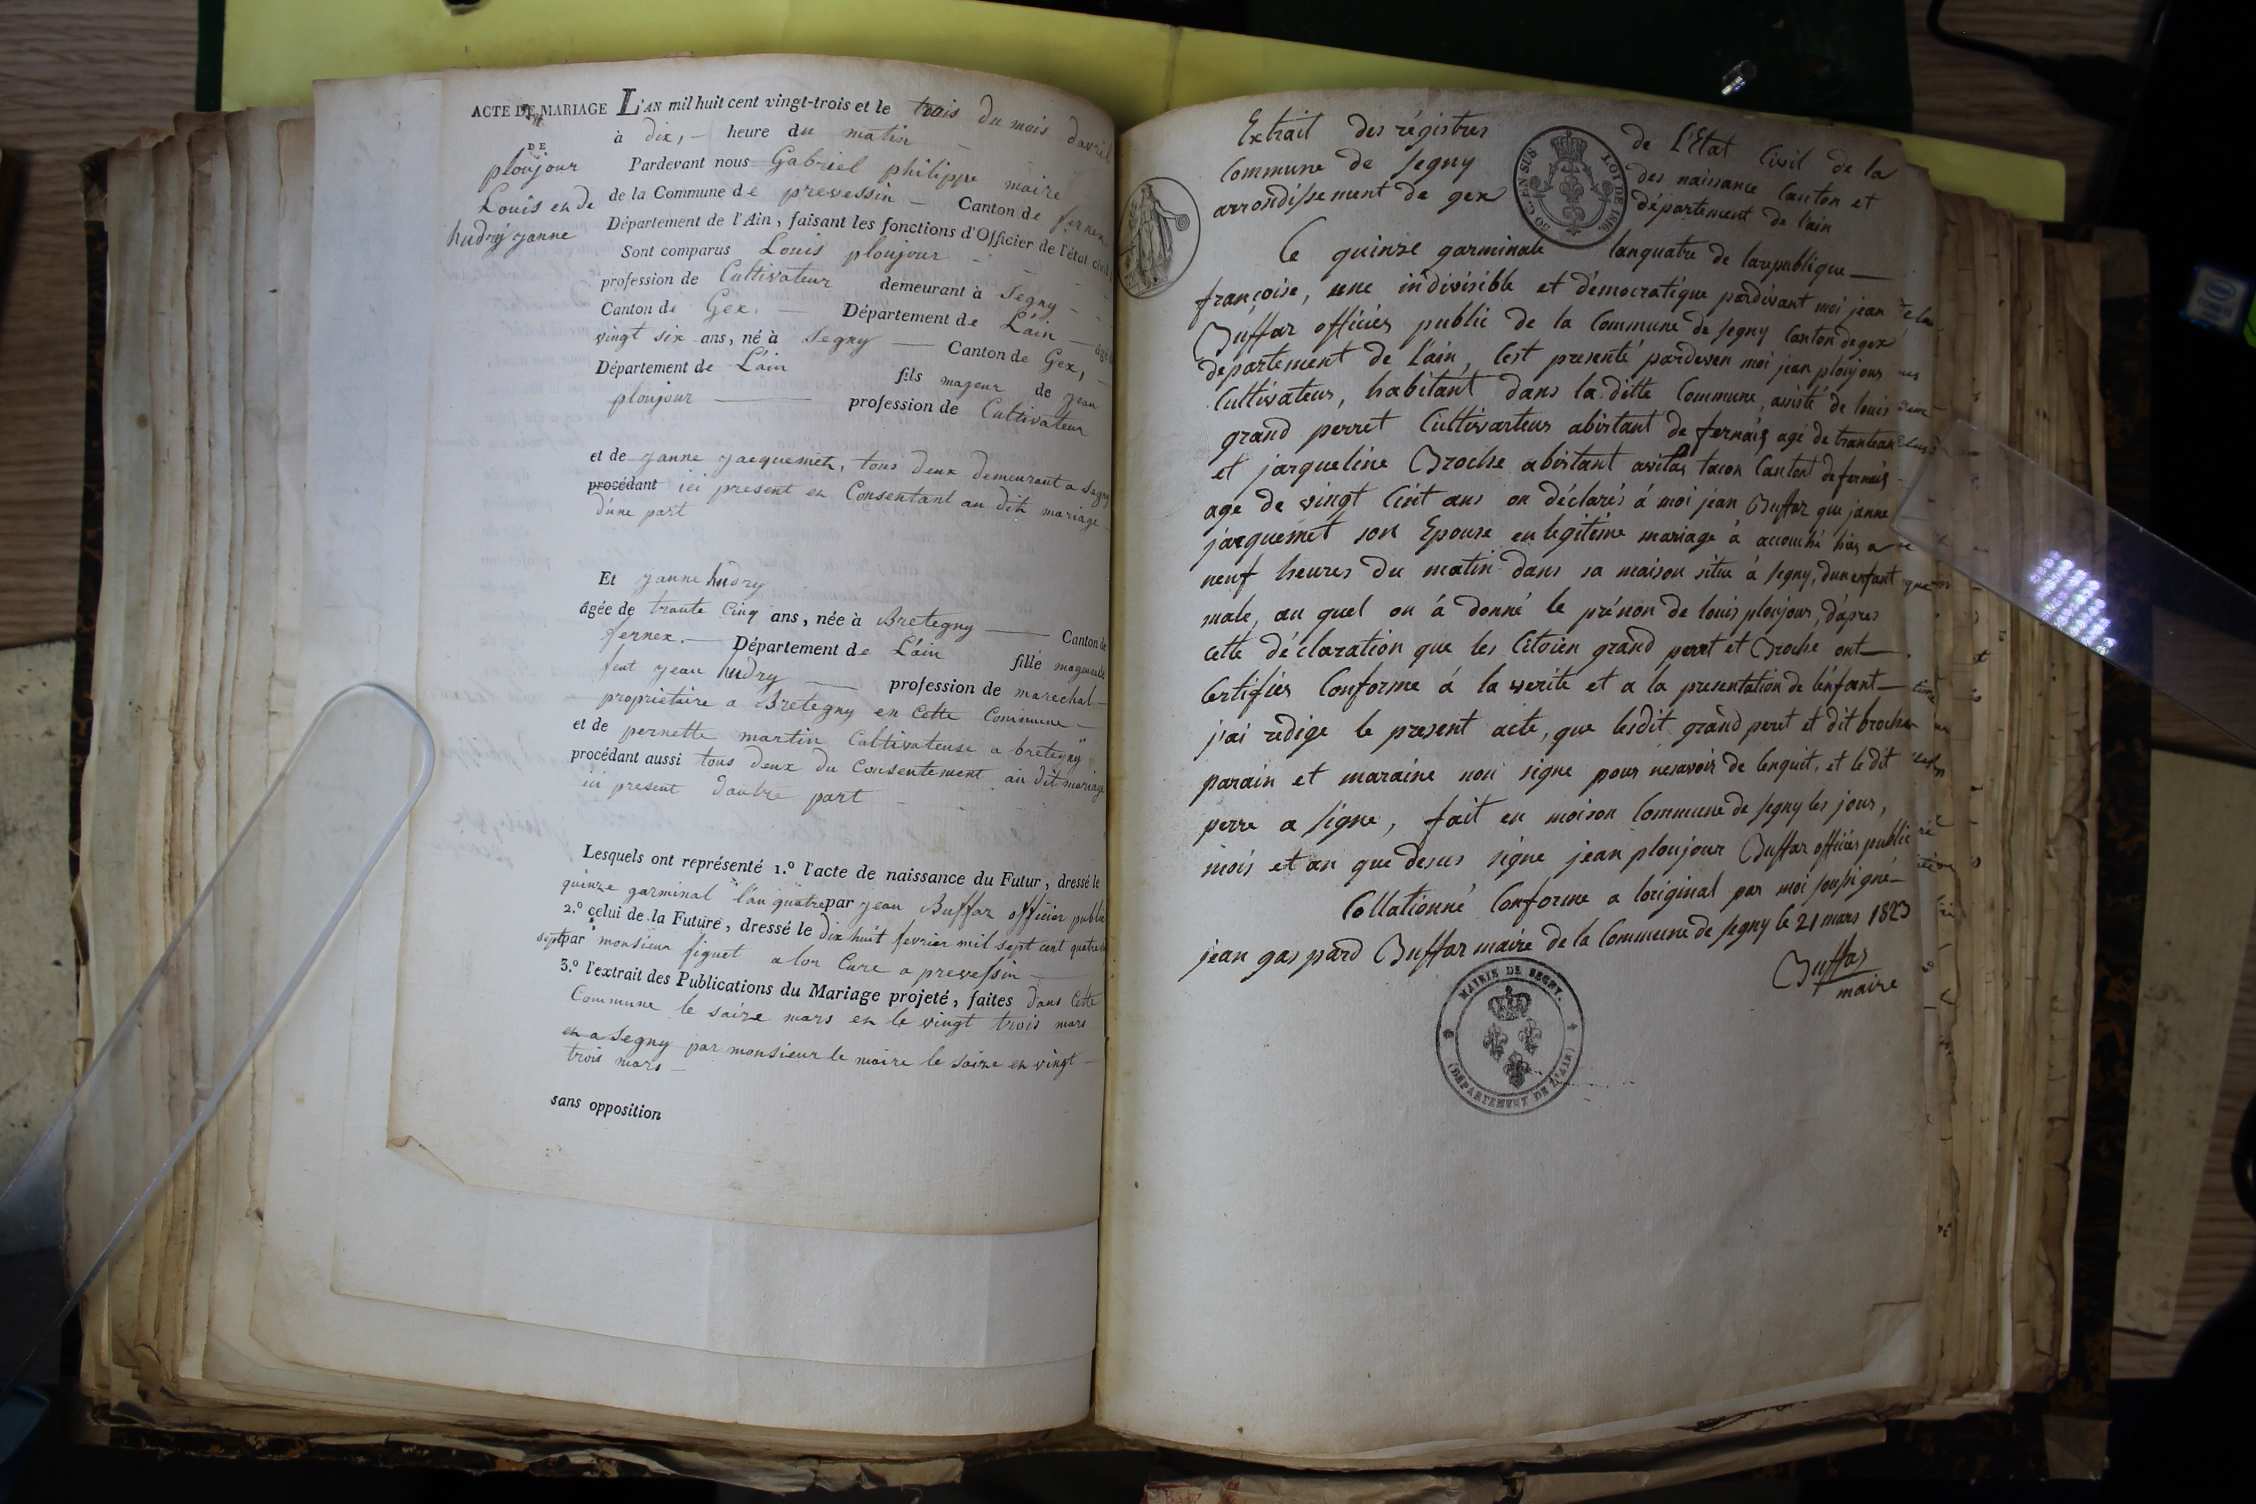 ACTE DE MARIAGE
DE
ploujour
Louis en de
hudry janne
L'AN mil huit cent vingt-trois et le trois du mois d'avril
à dix, heure du matin
Pardevant nous Gabriel philippe maire
de la Commune de prevessin Canton de fernex
Département de l'Ain, faisant les fonctions d'Officier de l'état civil
Sont comparus Louis ploujour
profession de Cultivateur demeurant à Segny
Canton de Gex. Département de L'ain âgé
vingt six ans, né à Segny Canton de Gex,
Département de L'ain fils mageur de jean
ploujour profession de Cultivateur
et de janne jacquemet, tous deux demeurant a Segny
procédant ici present en Consentant au dit mariage
d'une part
Et janne hudry
âgée de trante Cinq ans, née à Bretegny Canton de
fernex. Département de L'ain fille mageure de
feut jean hudry profession de marechal
propriétaire a Bretegny en Cette Commune
et de pernette martin Cultivateuse a bretegny
procédant aussi tous deux du Consentement au dit mariage
ici present d'autre part
Lesquels ont représenté 1.º l'acte de naissance du Futur, dressé le
quinze garminal l'an quatre par jean Buffaz officier public
2.º celui de la Future, dressé le dix huit fevrier mil sept cent quatre
sept par monsieur figuet alor Cure a prevessin
3.º l'extrait des Publications du Mariage projeté, faites dans Cette
Commune le saize mars en le vingt trois mars
en a Segny par monsieur le maire le saize en vingt
trois mars
sans opposition
Extrait des régistres de L'Etat Civil de la
Commune de Segny des naissance Canton et
arrondissement de gex département de l'ain
50 C. EN SUS
LOI DE 1816
Ce quinze garminale lanquatre de larepublique
françoise, une indivisible et démocratique pardevant moi jean
Buffaz officier public de la Commune de Segny Canton de gex
département de l'ain, Cest presenté pardeven moi jean ploujour
Cultivateur, habitant dans la ditte Commune, assisté de louis
grand perret Cultivarteur abitant de fernaix agé de trantean
et jacqueline Broche abistant avilas tacon Cantont de fernaix
age de vingt Cint ans on déclarés á moi jean Buffaz que janne
jacquemet son Epouse en legitime mariage á accouché hier a
neuf heures du matin dans sa maison situe á Segny, dun enfant
male, au quel on á donné le prénon de louis ploujour, d'apres
cette déclaration que les Citoien grand perret et Broche ont
Certifiér Conforme á la verité et a la presentation de l'énfant
j'ai rédige le present acte, que lesdit grand peret et dit broche
parain et maraine non signe pour nesavoir de lenquit, et le dit
perre a signe, fait en maison Commune de Segny les jour,
mois et an que desus signe jean ploujour Buffaz officier public
Collationné Conforme a loriginal par moi soussigné
jean gaspard Buffaz maire de la Commune de Segny le 21 mars 1823
Buffaz
maire
MAIRIE DE SEGNY.
(DÉPARTEMENT DE L'AIN)